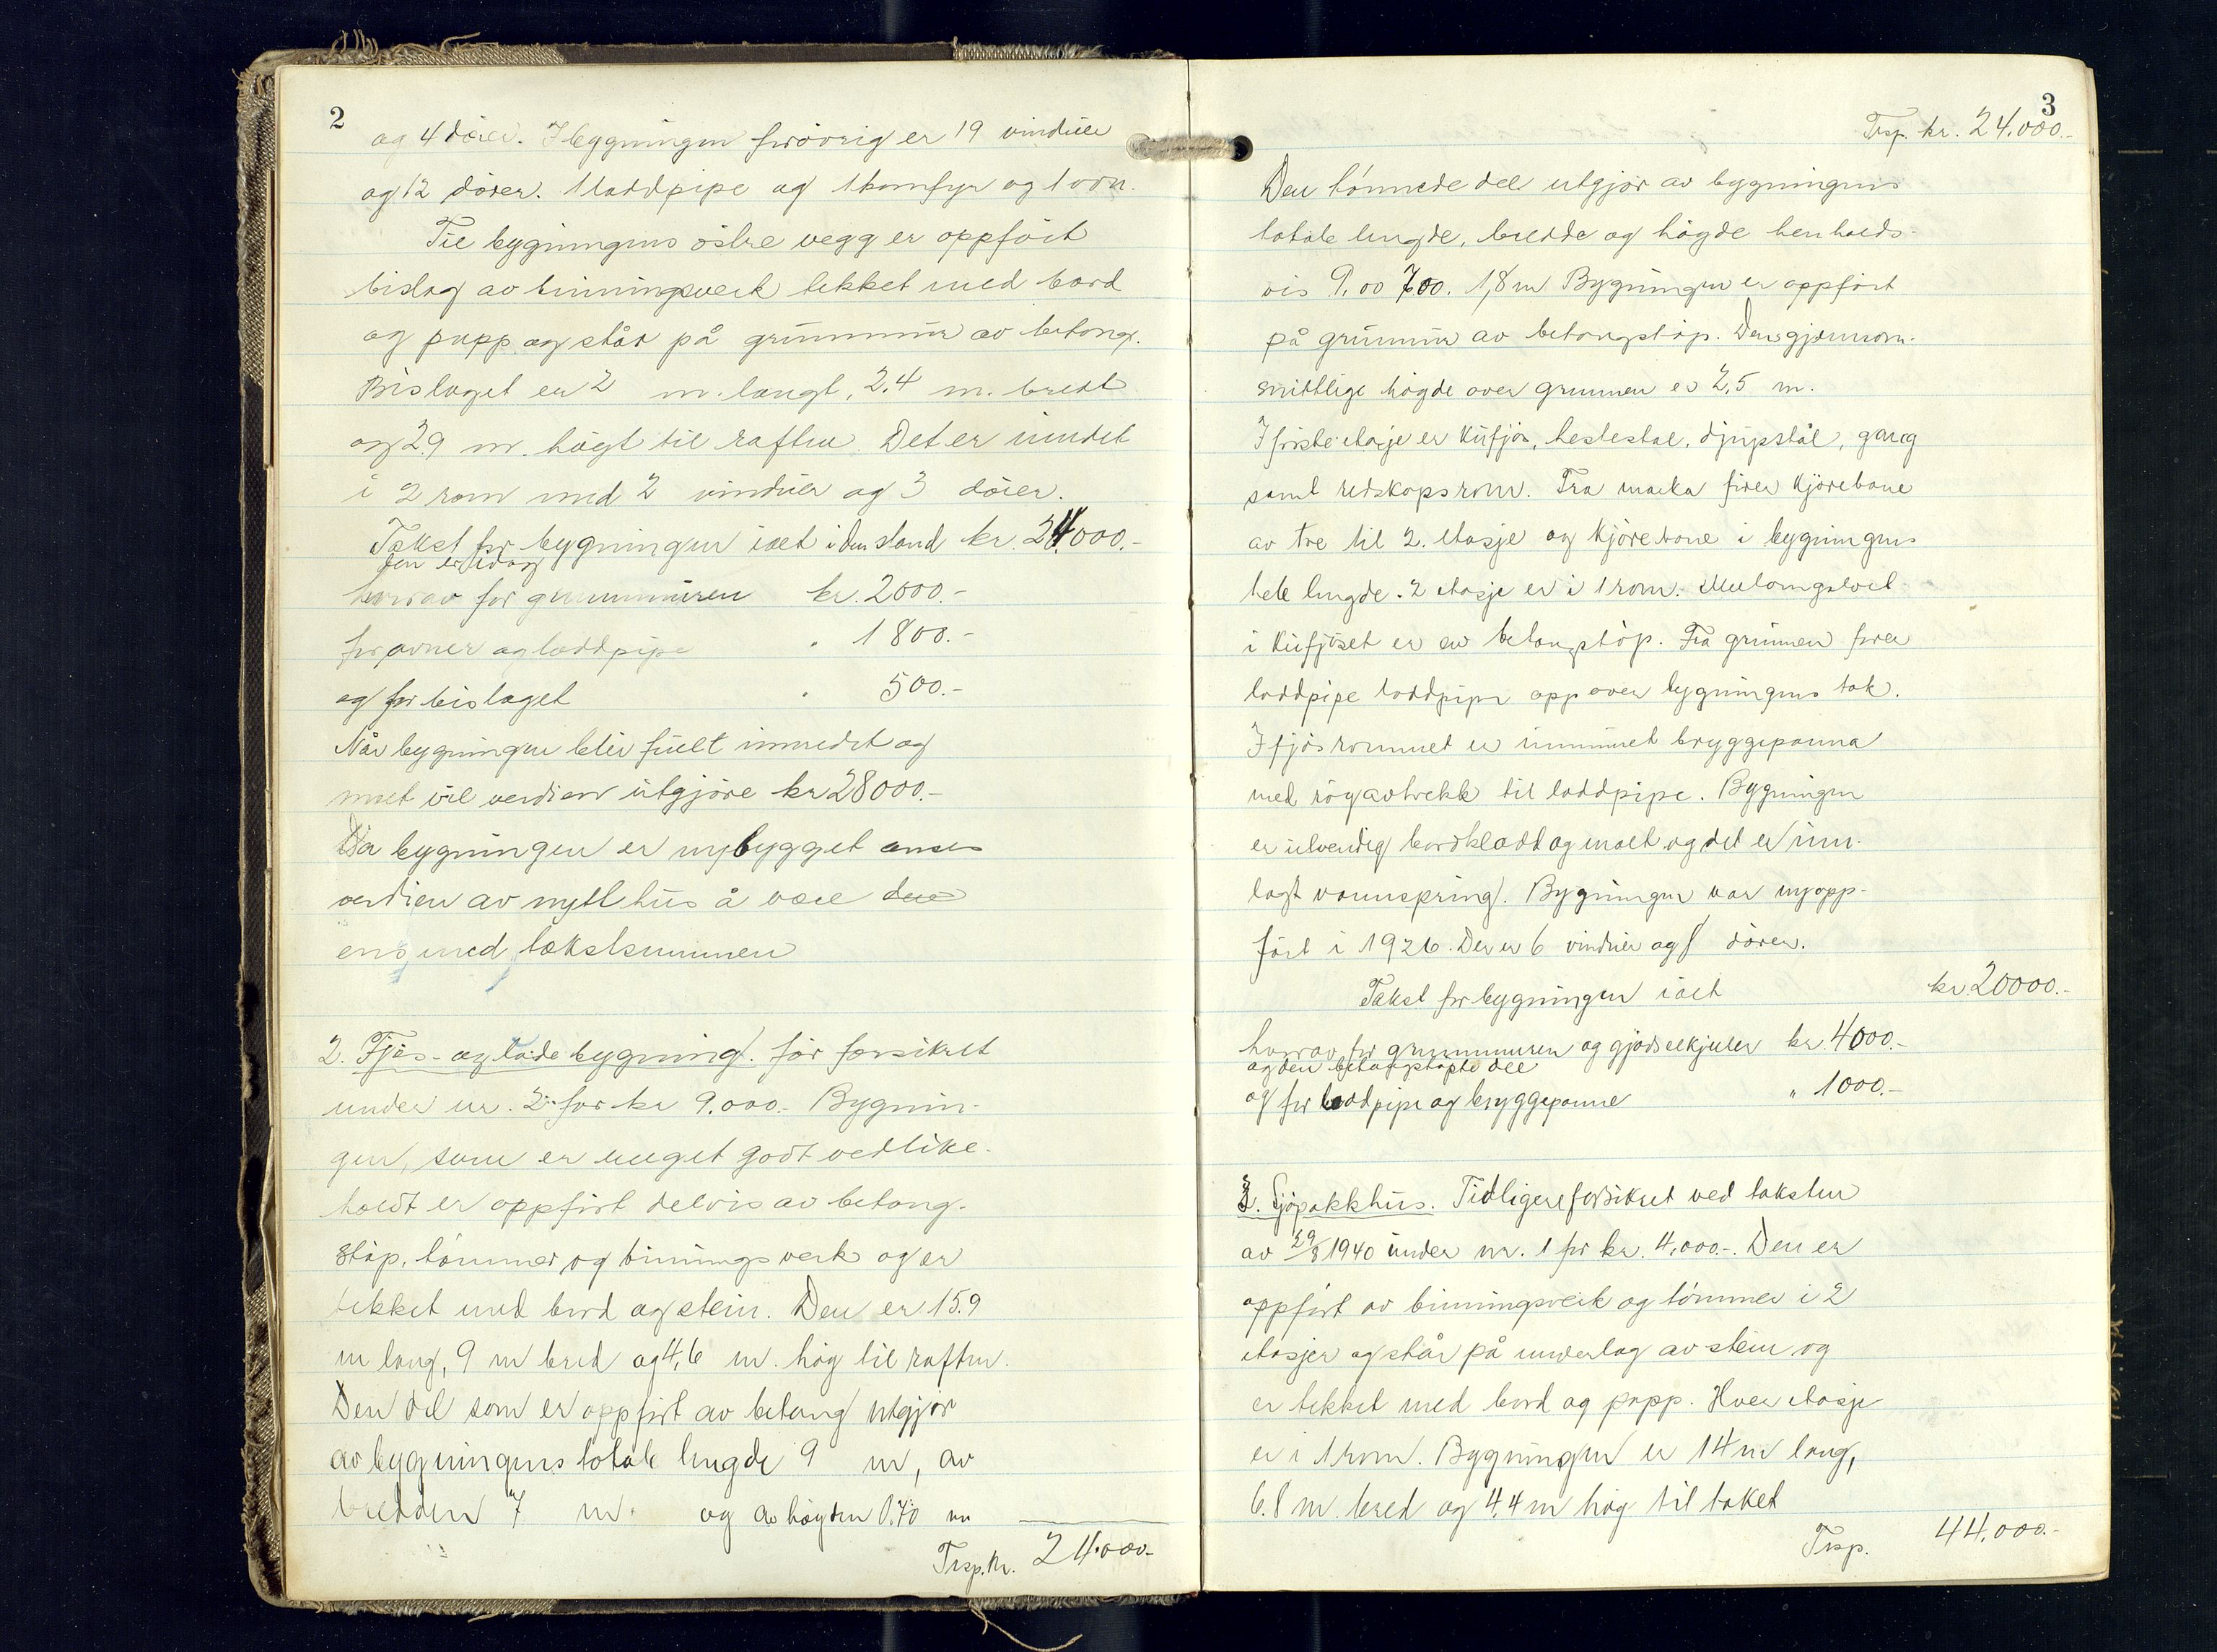 2
og 4 dører. I bygningen forövrig er 19 vinduer
og 12 dörer. 1 loddpipe og 1 komfyr og 1 ovn.
Til bygningens östre vegg er oppfört
bislag av binningsverk tekket med bord
og papp og står på grunnmur av betong.
Bislaget er 2 m. langt, 2.4 m. bredt
og 2.9 m. högt til raften. Det er inndet
i 2 rom med 2 vinduer og 3 dörer.
Takst for bygningen ialt i den stand kr. 24000.-
den er idag
hvorav for grunnmuren kr. 2000.-
for ovner og loddpipe " 1800.-
og for bislaget " 500.-
Når bygningen blir fullt innredet og
malt vil verdien utgjöre kr 28000.-
Da bygningen er nybygget anses
verdien av nytt hus å være den
ens med takstsummen
2. Fjös- og ladebygning. för forsikret
under nr. 2 for kr 9.000.- Bygnin-
gen, som er meget godt vedlike-
holdt er oppfört delvis av betong-
støp, tömmer og binningsverk og er
tekket med bord og stein. Den er 15.9
m lang, 9 m bred og 4,6 m. høg til raften.
Den del som er oppfört av betong utgjør
av bygningens totale lengde 9 m, av
bredden 7 m. og av høgden 0.70 m
Trsp. kr. 24.000.-
3
Trsp. kr. 24.000.-
Den tömrede del utgjör av bygningens
totale lengde, bredde og högde henholds-
vis 9.00 7.00. 1,8 m Bygningen er oppfört
på grunnmur av betongstöp. Den gjennom-
snittlige högde over grunnen er 2,5 m.
I förste etasje er kufjös, hestestal, djupstal, gang
samt redskapsrom. Fra marka fører kjörebane
av tre til 2. etasje og kjörebane i bygningens
hele lengde. 2 etasje er i 1 rom.
i kufjöset er av betongstöp. Fra grunnen fører
loddpipe loddpipe opp over bygningens tak.
I fjösrommet er innmuret bryggepanna
med røgavtrekk til loddpipe. Bygningen
er utvendig bordkledt og malt og det er inn-
lagt vannspring. Bygningen var nyopp-
fört i 1926. Der er 6 vinduer og 8 dörer.
Takst for bygningen ialt kr. 20000.-
hvorav for grunnmuren og gjødselkjeller kr. 4000.-
og den betongstøpte del
og for loddpipe og bryggepanne " 1000.-
3. Sjöpakkhus. Tidligere forsikret ved taksten
av 29/8 1940 under nr. 1 for kr. 4.000.-. Den er
oppfört av binningsverk og tömmer i 2
etasjer og står på underlag av stein og
er tekket med bord og papp. Hver etasje
er i 1 rom. Bygningen er 14 m lang,
6.8 m bred og 4.4 m høg til taket
Trsp. 44.000.-